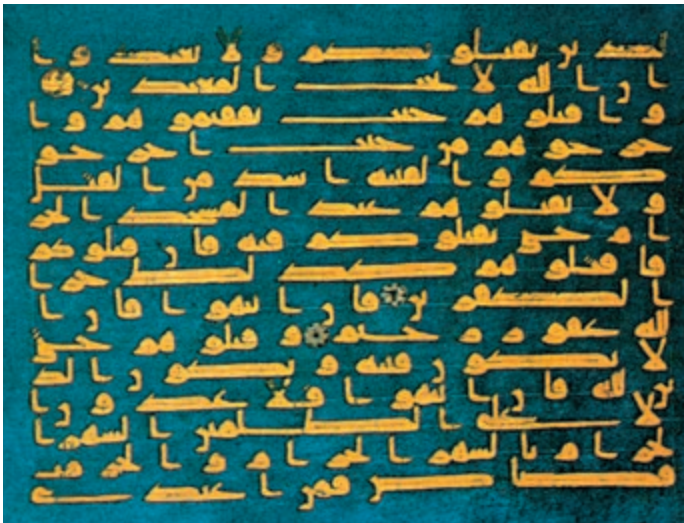 لذين يقتلونكم ولا تعتدوا
ان الله لا يحب المعتدين
واقتلوهم حيث ثقفتموهم وا
خرجوهم من حيث اخرجو
كم والفتنة اشد من القتل
ولا تقتلوهم عند المسجد الحر
ام حتى يقتلوكم فيه فان قتلوكم
فاقتلوهم كذلك جزا
الكفرين فان انتهوا فان ا
لله غفور رحيم وقتلوهم حتى
لا تكون فتنة ويكون الد
ين لله فان انتهوا فلا عدون ا
لا على الظلمين الشهر ا
لحرام بالشهر الحرام والحرمت
قصاص فمن اعتدى